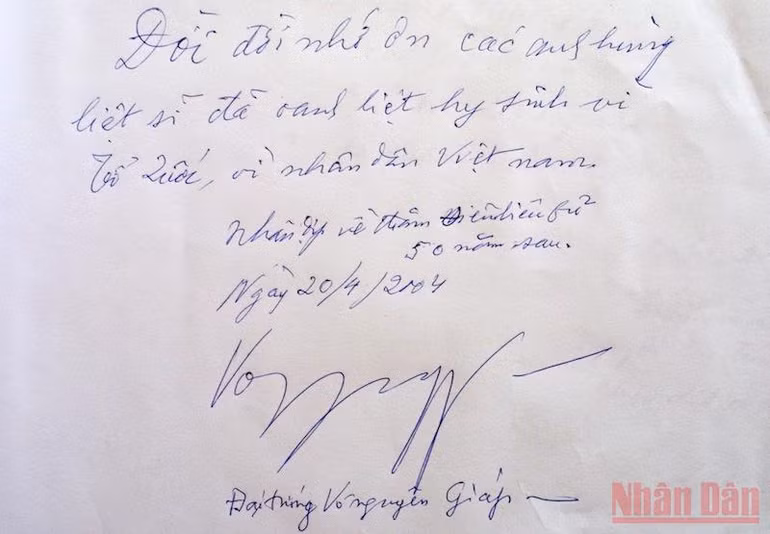 Đời đời nhớ ơn các anh hùng
liệt sĩ đã oanh liệt hy sinh vì
Tổ Quốc, vì nhân dân Việt nam.
Nhân dịp về thăm Điện biên phủ
50 năm sau.
Ngày 20/4/2004
Đại tướng Võ nguyên Giáp
Nhân Dân